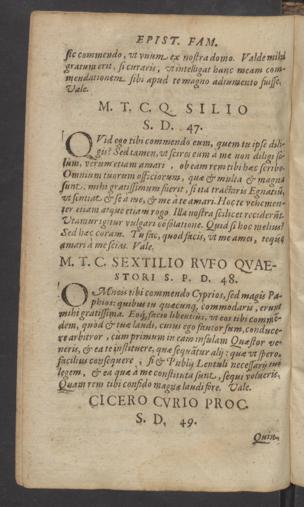 EPIST. FAM.
sic commendo, vt vnum ex nostra domo. Valde mihi
gratum erit, si curaris, vt intelligat hanc meam com-
mendationem sibi apud te magno adiumento fuisse.
Vale.
M. T. C. Q. SILIO
S. D. 47.
QVid ego tibi commendo eum, quem tu ipse dili-
gis? Sed tamen, vt scires eum à me non diligi so-
lum, verum etiam amari, ob eam rem tibi hæc scribo.
Omnium tuorum officiorum, quæ & multa & magna
sunt, mihi gratissimum fuerit, si ita tractâris Egnatiũ,
vt sentiat & se à me, & me à te amari. Hoc te vehemen-
ter etiam atque etiam rogo. Illa nostra scilicet reciderũt.
Vtamur igitur vulgari cõsolatione. Quid si hoc melius?
Sed hæc coram. Tu fac, quod facis, vt me ames, teque
amari à me scias. Vale.
M. T. C. SEXTILIO RVFO QVAE-
STORI S. P. D. 48.
OMnois tibi commendo Cyprios, sed magis Pa-
phios: quibus tu quæcunq; commodaris, erunt
mihi gratissima. Eoq́; facio libentius, vt eos tibi commē-
dem, quod & tuæ laudi, cuius ego fautor sum, conduce-
re arbitror, cum primum in eam insulam Quæstor ve-
neris, & ea te instituere, quæ sequãtur alij: quæ vt spero,
facilius consequere, si & Publij Lentuli necessarij tui
legem, & ea quæ à me constituta sunt, sequi volueris.
Quam rem tibi confido magnæ laudi fore. Vale.
CICERO CVRIO PROC.
S. D. 49.
Quin-